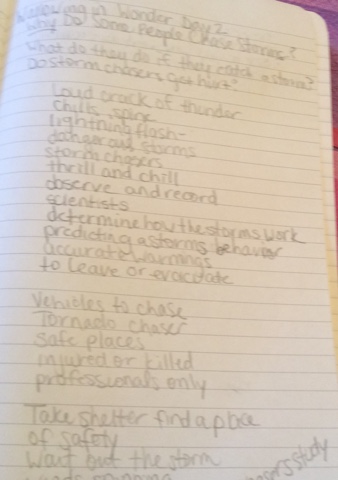 Wallowing in Wonder Day 2
Why Do Some People Chase Storms?
What do they do if they catch a storm?
Do storm chasers get hurt?
Loud crack of thunder
Chills spine
lightning flash-
dangerous storms
storm chasers
thrill and chill
observe and record
scientists
determine how the storms work
predicting a storms behavior
accurate warnings
to leave or evacuate
Vehicles to chase
Tornado chaser
safe places
injured or killed
professionals only
Take shelter find a place
of safety
Wait out the storm
study